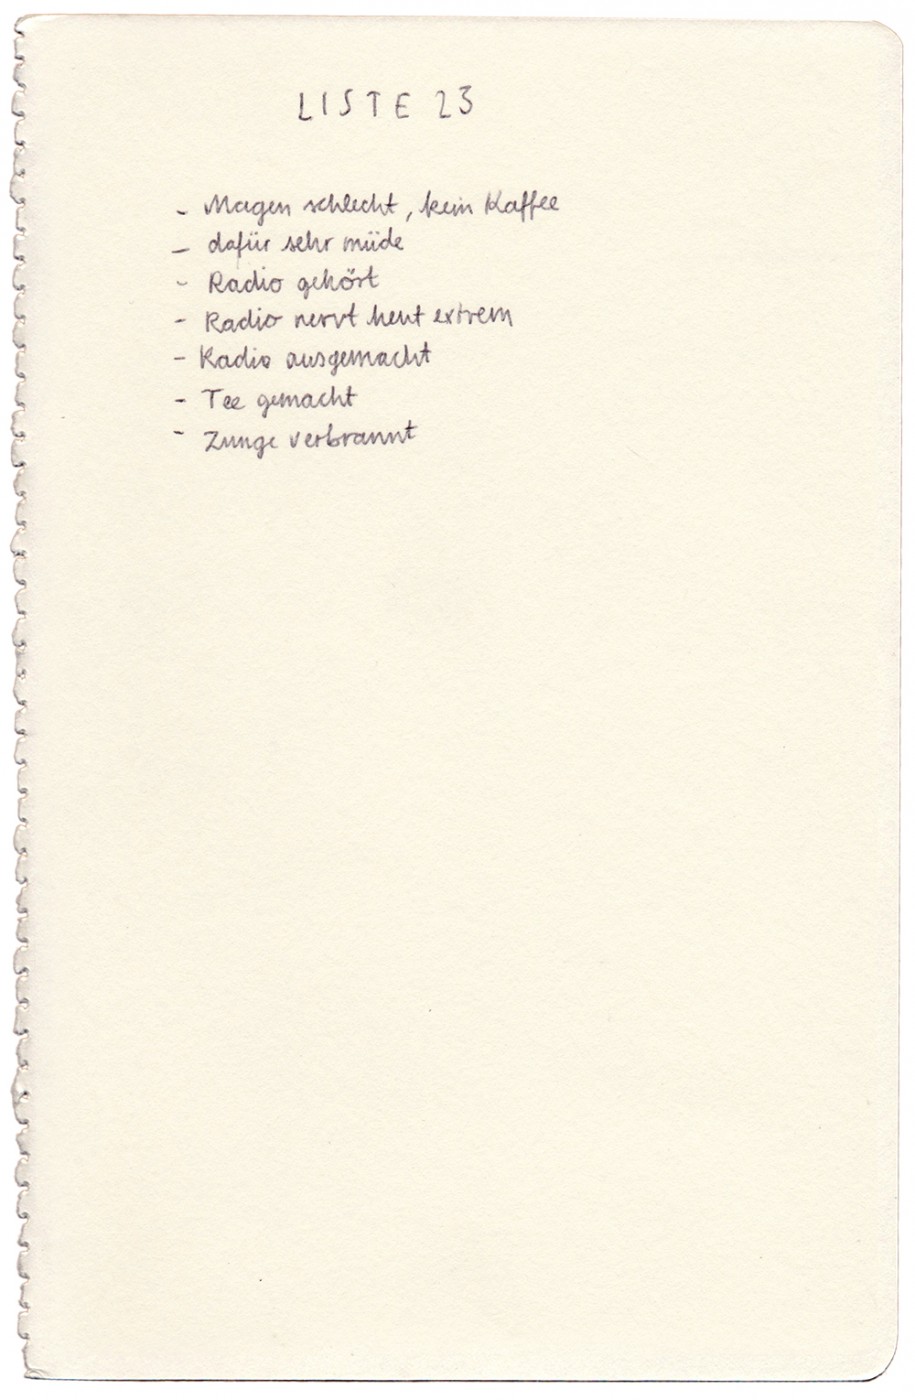 LISTE 23
- Magen schlecht, kein Kaffee
- dafür sehr müde
- Radio gehört
- Radio nervt heut extrem
- Radio ausgemacht
- Tee gemacht
- Zunge verbrannt